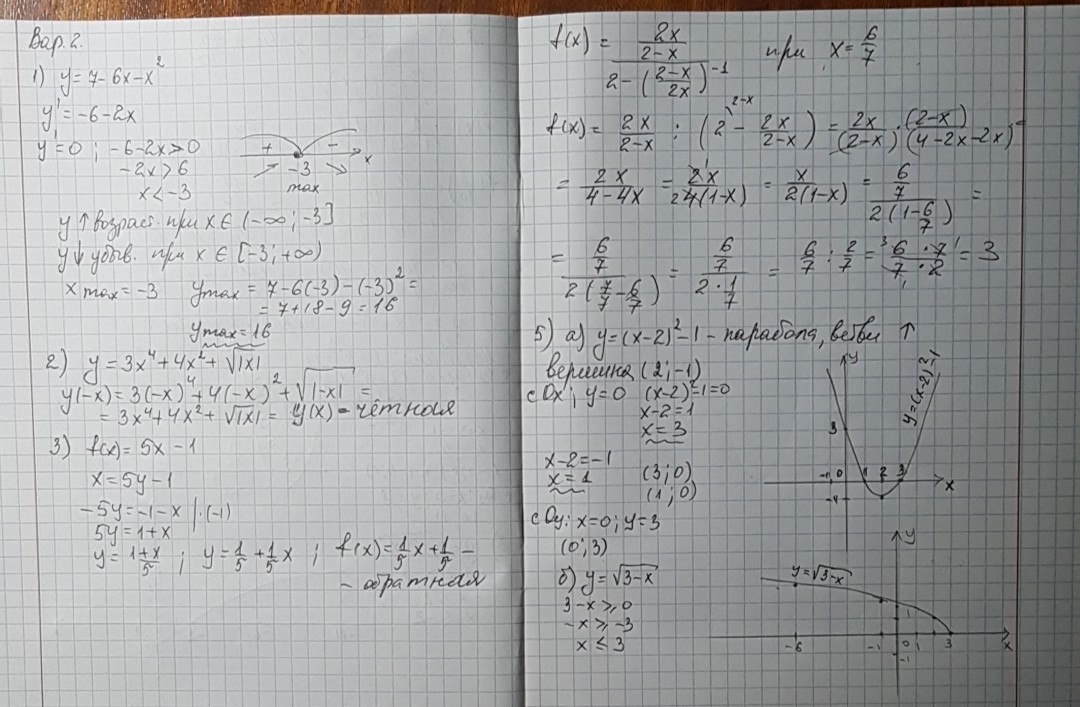 Вар. 2.
1) y = 7 - 6x - x²
y' = -6 - 2x
y' = 0 ; -6 - 2x > 0
-2x > 6
x < -3
+ - x
-3
max
y ↑ возраст. при x ∈ (-∞; -3]
y ↓ убыв. при x ∈ [-3; +∞)
x max = -3 y max = 7 - 6(-3) - (-3)² =
= 7 + 18 - 9 = 16
y max = 16
2) y = 3x⁴ + 4x² + √|x|
y(-x) = 3(-x)⁴ + 4(-x)² + √|-x| =
= 3x⁴ + 4x² + √|x| = y(x) - чётная
3) f(x) = 5x - 1
x = 5y - 1
-5y = -1 - x | ·(-1)
5y = 1 + x
y = (1+x)/5 ; y = 1/5 + 1/5 x ; f(x) = 1/5 x + 1/5 -
- обратная
f(x) = (2x/(2-x)) / (2 - ((2-x)/2x)⁻¹) при x = 6/7
f(x) = 2x/(2-x) : (2^(2-x) - 2x/(2-x)) = 2x/(2-x) · (2-x)/(4-2x-2x) =
= 2x/(4-4x) = 2x/(4(1-x)) = x/(2(1-x)) = (6/7)/(2(1-6/7)) =
= (6/7)/(2(7/7-6/7)) = (6/7)/(2·1/7) = 6/7 : 2/7 = (6·7)/(7·2) = 3
5) а) y = (x-2)² - 1 - парабола, ветви ↑
вершина (2; -1)
с Ox; y = 0 (x-2)² - 1 = 0
x - 2 = 1
x = 3
x - 2 = -1
x = 1 (3; 0)
(1; 0)
с Oy: x = 0; y = 3
(0; 3)
y
y = (x-2)² - 1
3
-1 0 1 2 3
x
б) y = √(3-x)
3 - x ≥ 0
-x ≥ -3
x ≤ 3
y
y = √(3-x)
1
-6 -1 0 1 3 x
-1